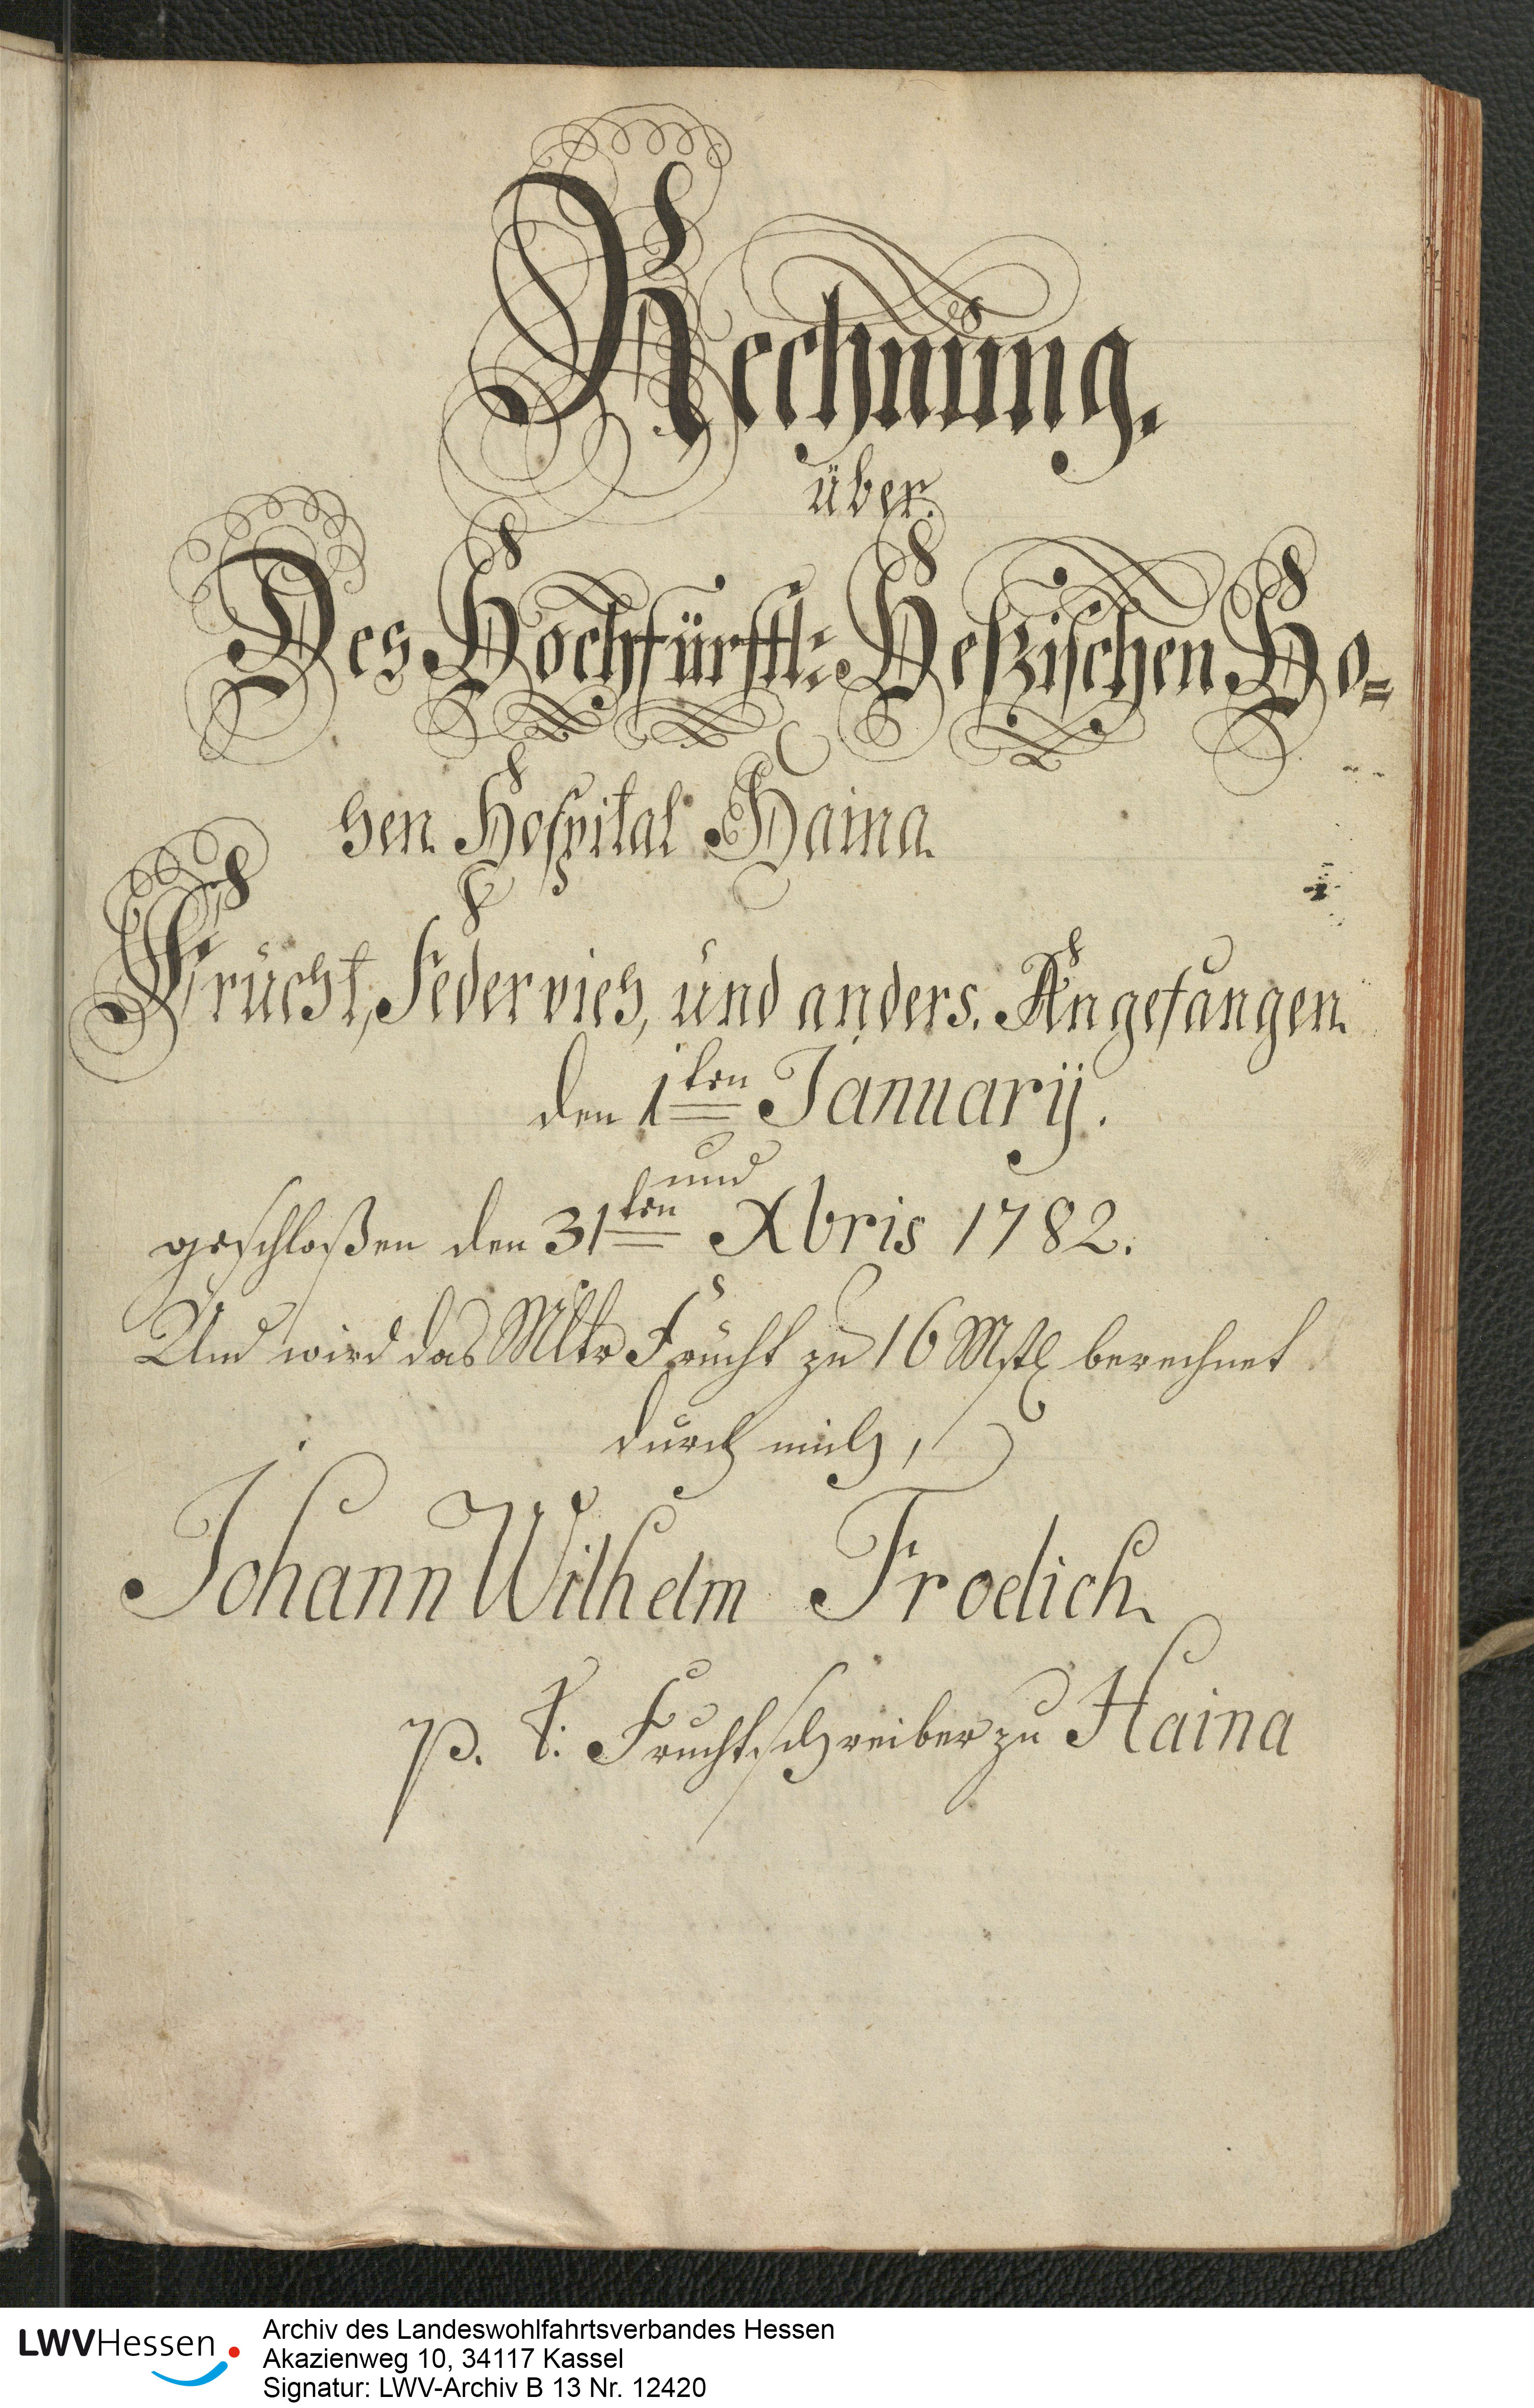 Rechnung.
über.
Des Hochfürstl: Heszischen Ho=
hen Hospital Haina.
Frucht, Federvieh, und anders. Angefangen.
den 1ten Januarij.
und
geschloßen den 31ten Xbris 1782.
Und wird das Mltr Frucht zu 16 Mstl berechnet
durch mich,
Johann Wilhelm Froelich.
p. t: Fruchtschreiber zu Haina
LWVHessen
Archiv des Landeswohlfahrtsverbandes Hessen
Akazienweg 10, 34117 Kassel
Signatur: LWV-Archiv B 13 Nr. 12420